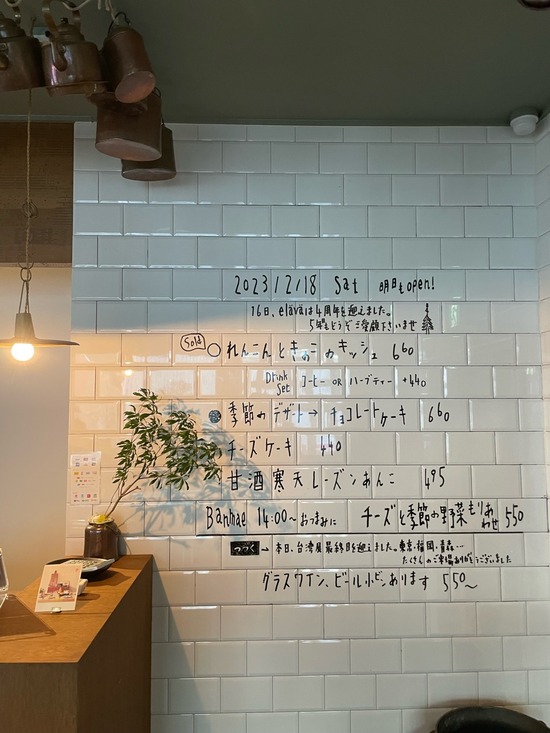 2023/2/18 Sat 明日もopen!
16日、eläväは4周年を迎えました。
5年目もどうぞご愛顧下さいませ
Sold ○ れんこんときのこのキッシュ 660
Drink Set コーヒー OR ハーブティー +440
季節のデザート→ チョコレートケーキ 660
チーズケーキ 440
甘酒寒天レーズンあんこ 495
14:00〜おつまみに チーズと季節の野菜もりあわせ 550
つづく → 本日、台湾展最終日を迎えました。東京・福岡・青森…
たくさんのご来場ありがとうございました
グラスワイン、ビール小ビンあります 550〜